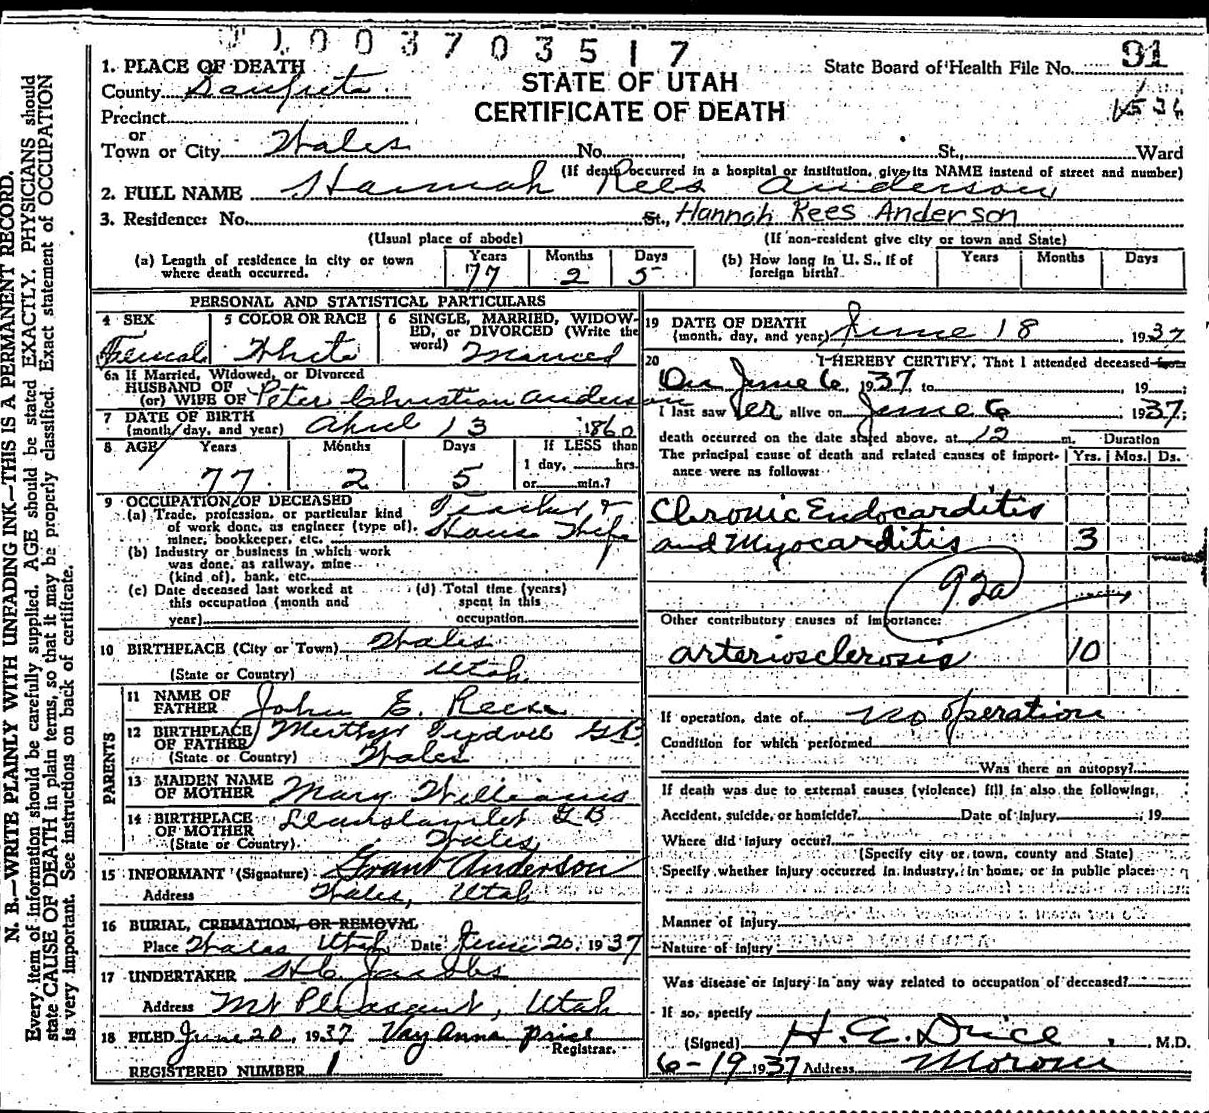 1003703517
1. PLACE OF DEATH
STATE OF UTAH
CERTIFICATE OF DEATH
State Board of Health File No. 91
County Sanpete
Precinct
or
Town or City Wales No. St., Ward
(If death occurred in a hospital or institution, give its NAME instead of street and number)
2. FULL NAME Hannah Rees Anderson
3. Residence: No. St., Hannah Rees Anderson
(Usual place of abode) (If non-resident give city or town and State)
(a) Length of residence in city or town where death occurred. Years 77 Months 2 Days 5
(b) How long in U. S., if of foreign birth? Years Months Days
PERSONAL AND STATISTICAL PARTICULARS
4 SEX Female
5 COLOR OR RACE White
6 SINGLE, MARRIED, WIDOWED, or DIVORCED (Write the word) Married
6a If Married, Widowed, or Divorced
HUSBAND OF
(or) WIFE OF Peter Christian Anderson
7 DATE OF BIRTH
(month, day, and year) April 13 1860
8 AGE Years 77 Months 2 Days 5 If LESS than
1 day, hrs.
or min.?
9 OCCUPATION OF DECEASED
(a) Trade, profession, or particular kind of work done, as engineer (type of), miner, bookkeeper, etc. Teacher & House Wife
(b) Industry or business in which work was done, as railway, mine (kind of), bank, etc.
(c) Date deceased last worked at this occupation (month and year)
(d) Total time (years) spent in this occupation
10 BIRTHPLACE (City or Town) Wales
(State or Country) Utah
PARENTS
11 NAME OF FATHER John E. Rees
12 BIRTHPLACE OF FATHER Merthyr Tydvil G.B.
(State or Country) Wales
13 MAIDEN NAME OF MOTHER Mary Williams
14 BIRTHPLACE OF MOTHER G B
(State or Country). Wales
15 INFORMANT (Signature) Grant Anderson
Address Wales, Utah
16 BURIAL, CREMATION, OR REMOVAL
Place Wales Utah Date June 20, 1937
17 UNDERTAKER Jacobs
Address Mt Pleasant, Utah
18 FILED June 20, 1937 Vay Anna Price
Registrar.
REGISTERED NUMBER 1
19 DATE OF DEATH
(month, day, and year) June 18, 1937
20 I HEREBY CERTIFY, That I attended deceased from
On June 6, 1937, to 19
I last saw her alive on June 6 1937;
death occurred on the date stated above, at 12 m. Duration
The principal cause of death and related causes of importance were as follows: Yrs. Mos. Ds.
Chronic Endocarditis
and Myocarditis 3
92a
Other contributory causes of importance:
arteriosclerosis 10
If operation, date of no operation
Condition for which performed
Was there an autopsy?
If death was due to external causes (violence) fill in also the following:
Accident, suicide, or homicide? Date of injury 19
Where did injury occur?
(Specify city or town, county and State)
Specify whether injury occurred in industry, in home, or in public place:
Manner of injury
Nature of injury
Was disease or injury in any way related to occupation of deceased?
If so, specify
(Signed) , M.D.
6-19 1937 Address Moroni
N. B.—WRITE PLAINLY WITH UNFADING INK—THIS IS A PERMANENT RECORD.
Every item of information should be carefully supplied. AGE should be stated EXACTLY. PHYSICIANS should
state CAUSE OF DEATH in plain terms, so that it may be properly classified. Exact statement of OCCUPATION
is very important. See instructions on back of certificate.